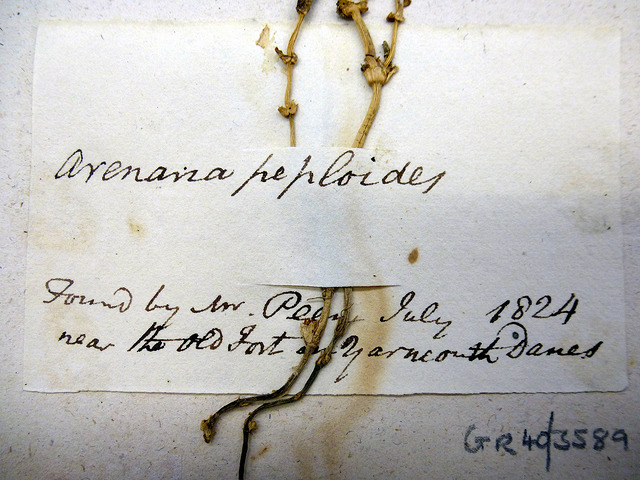 Arenaria peploides
Found by Mr. July 1824
near the old Fort on Yarmouth Danes
GR 40/3589